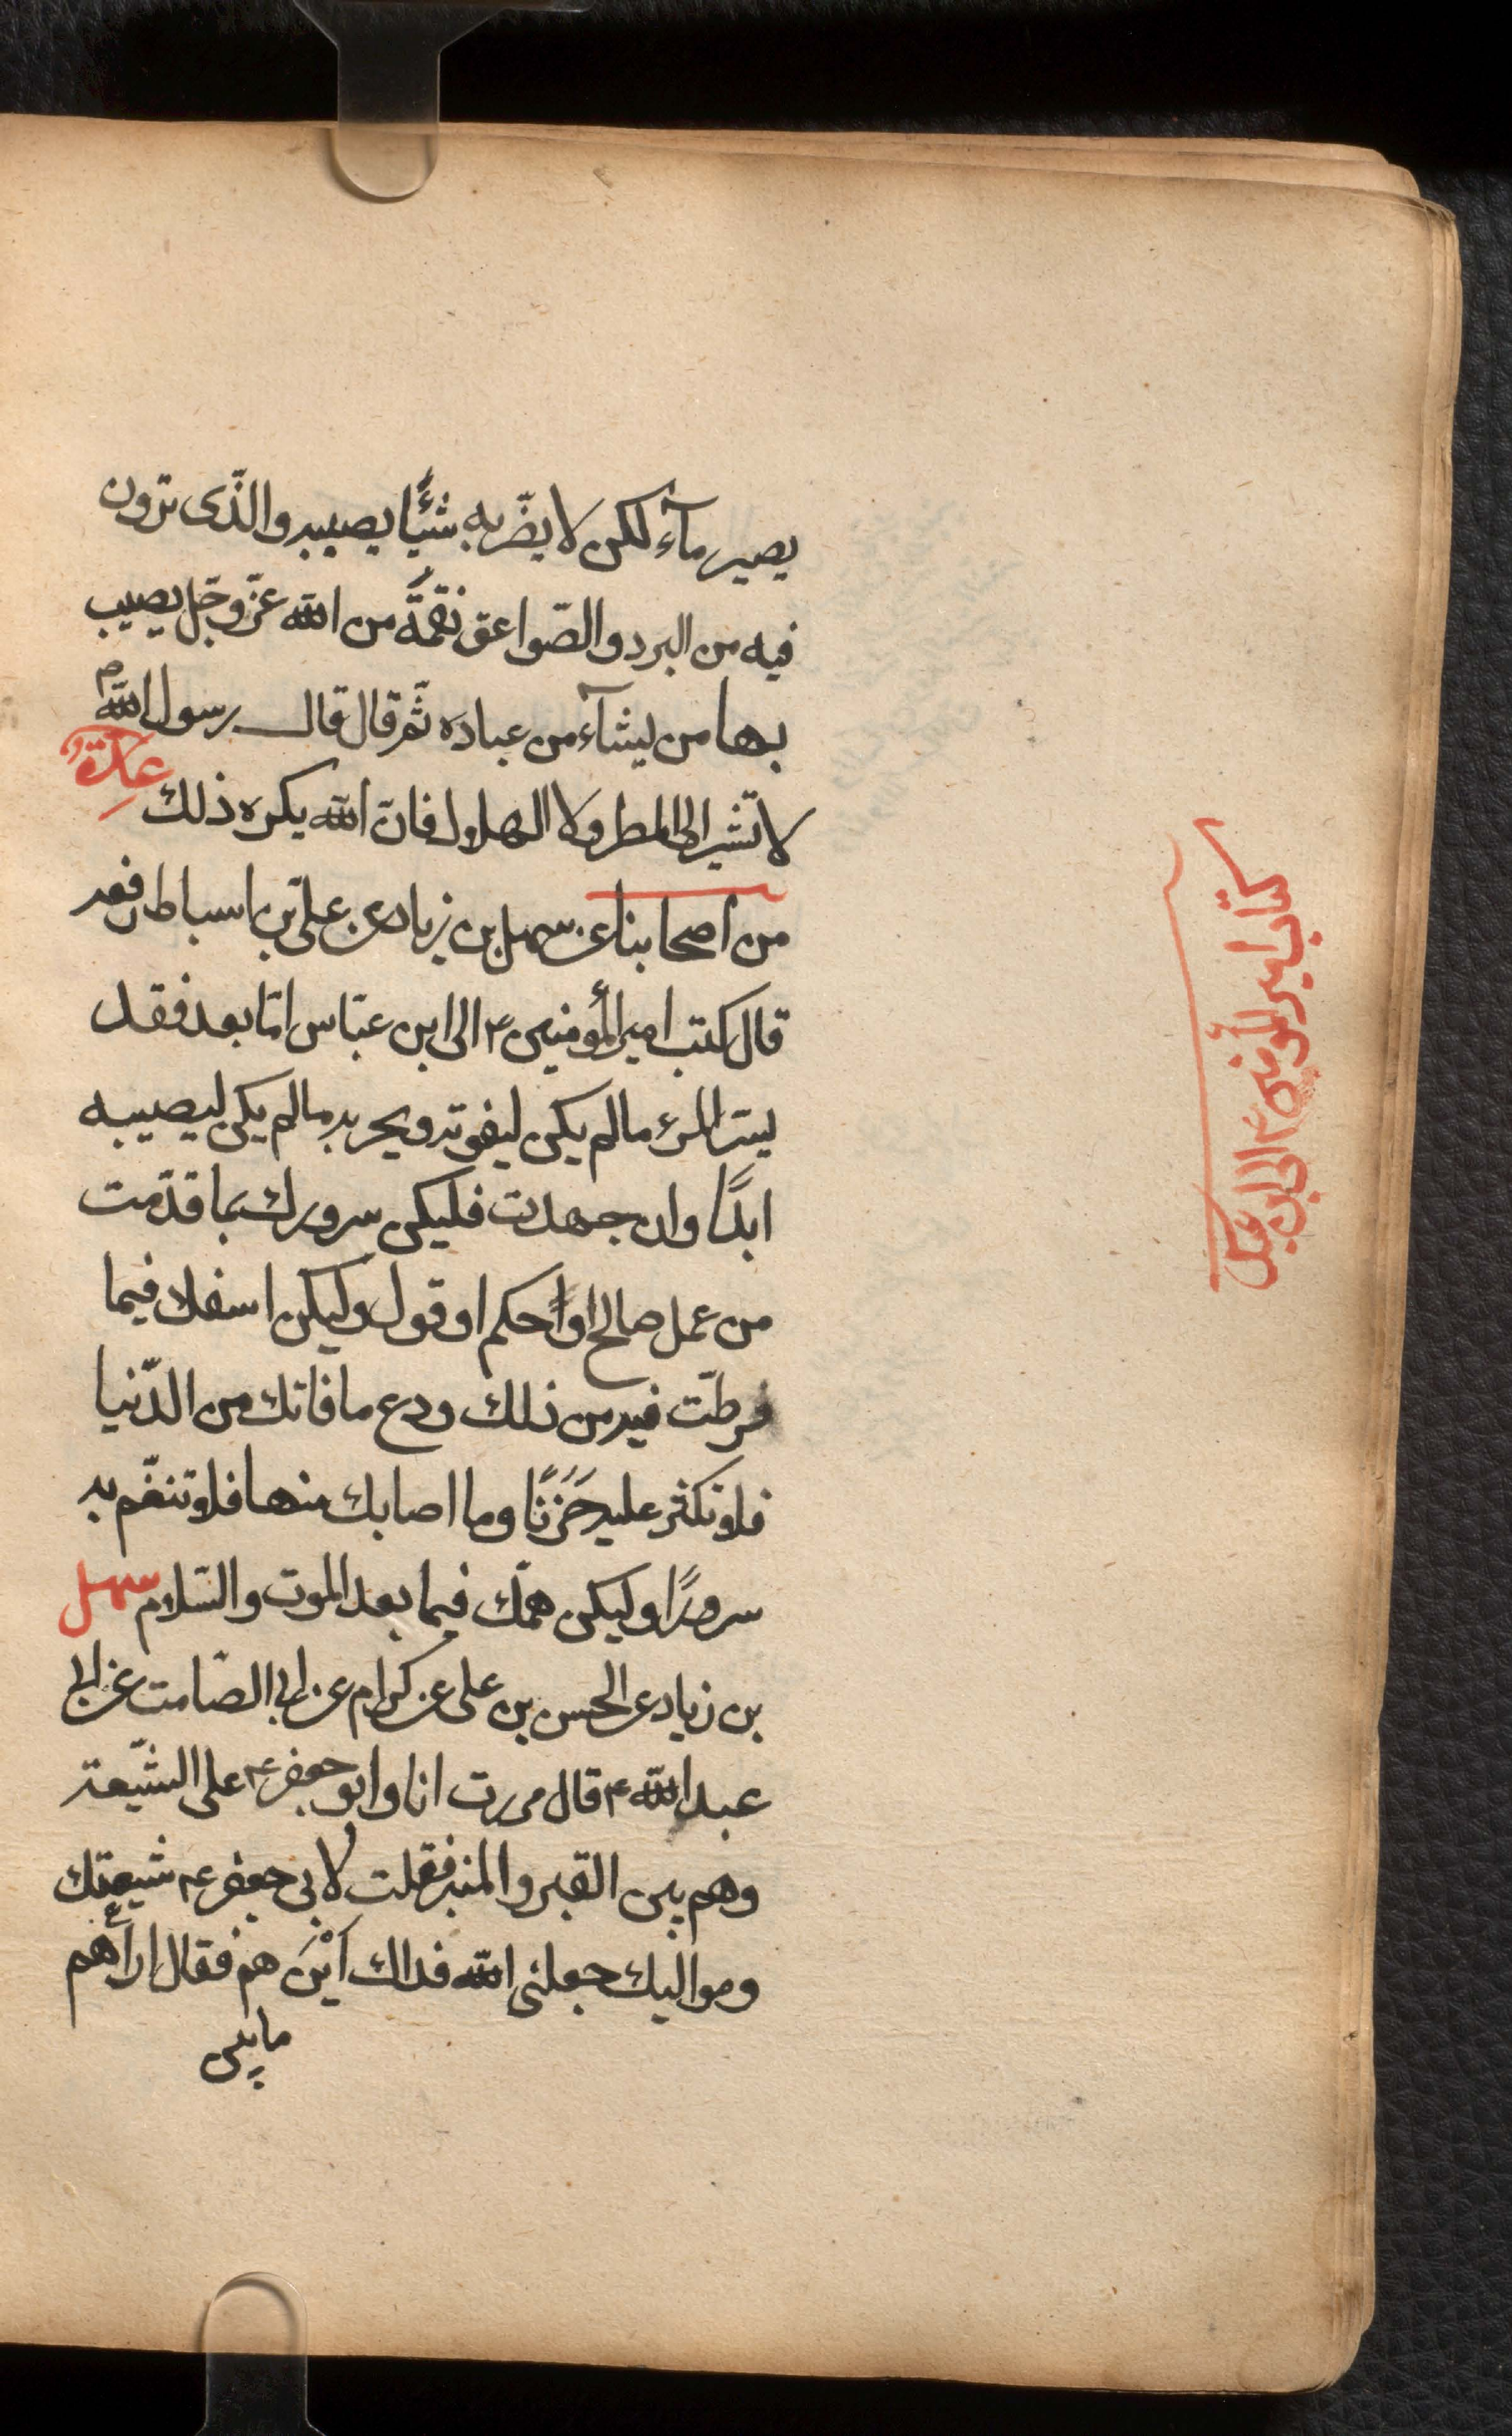 يصير مآء لكن لا يضّر به شيئًا يصيبه والذّى ترون
فيه من البرد والصّواعق نقمَّة من الله عزّ وجّل يصيب
بها من يشآء من عباده ثّم قال قال رسول الله ص
لا تشير الى المطر ولا الهلال فانّ الله يكره ذلك عدّةٌ
من اصحابنا عن سهل بن زياد عن علىّ بن اسباط رفعه
قال كتب امير المؤمنين ع الى ابن عبّاس امّا بعد فقد
يسّر المرء ما لم يكن ليفوته ويحزنه ما لم يكن ليصيبه
ابدًا وان جهدت فليكن سرورك بما قدّمت
من عمل صالح اوْ حكم او قول وليكن اسفك فيما
فرطّت فيه من ذلك ودع ما فاتك من الدّنيا
فلا تكثر عليه حَزَنًا وما اصابك منها فلا تنعّم به
سرورًا وليكن همّك فيما بعد الموت والسّلام سهل
بن زياد عن الحسن بن على عن كرام عن ابى الصّامت عن ابى
عبد الله ع قال مررت انا وابو جعفر ع على الشّيعة
وهم بين القبر والمنبر فقلت لابى جعفر ع شيعتك
ومواليك جعلنى الله فداك اَيْنَ هم فقال اراهم
ما بين
كتاب امير المؤمنين ع الى ابن عباس